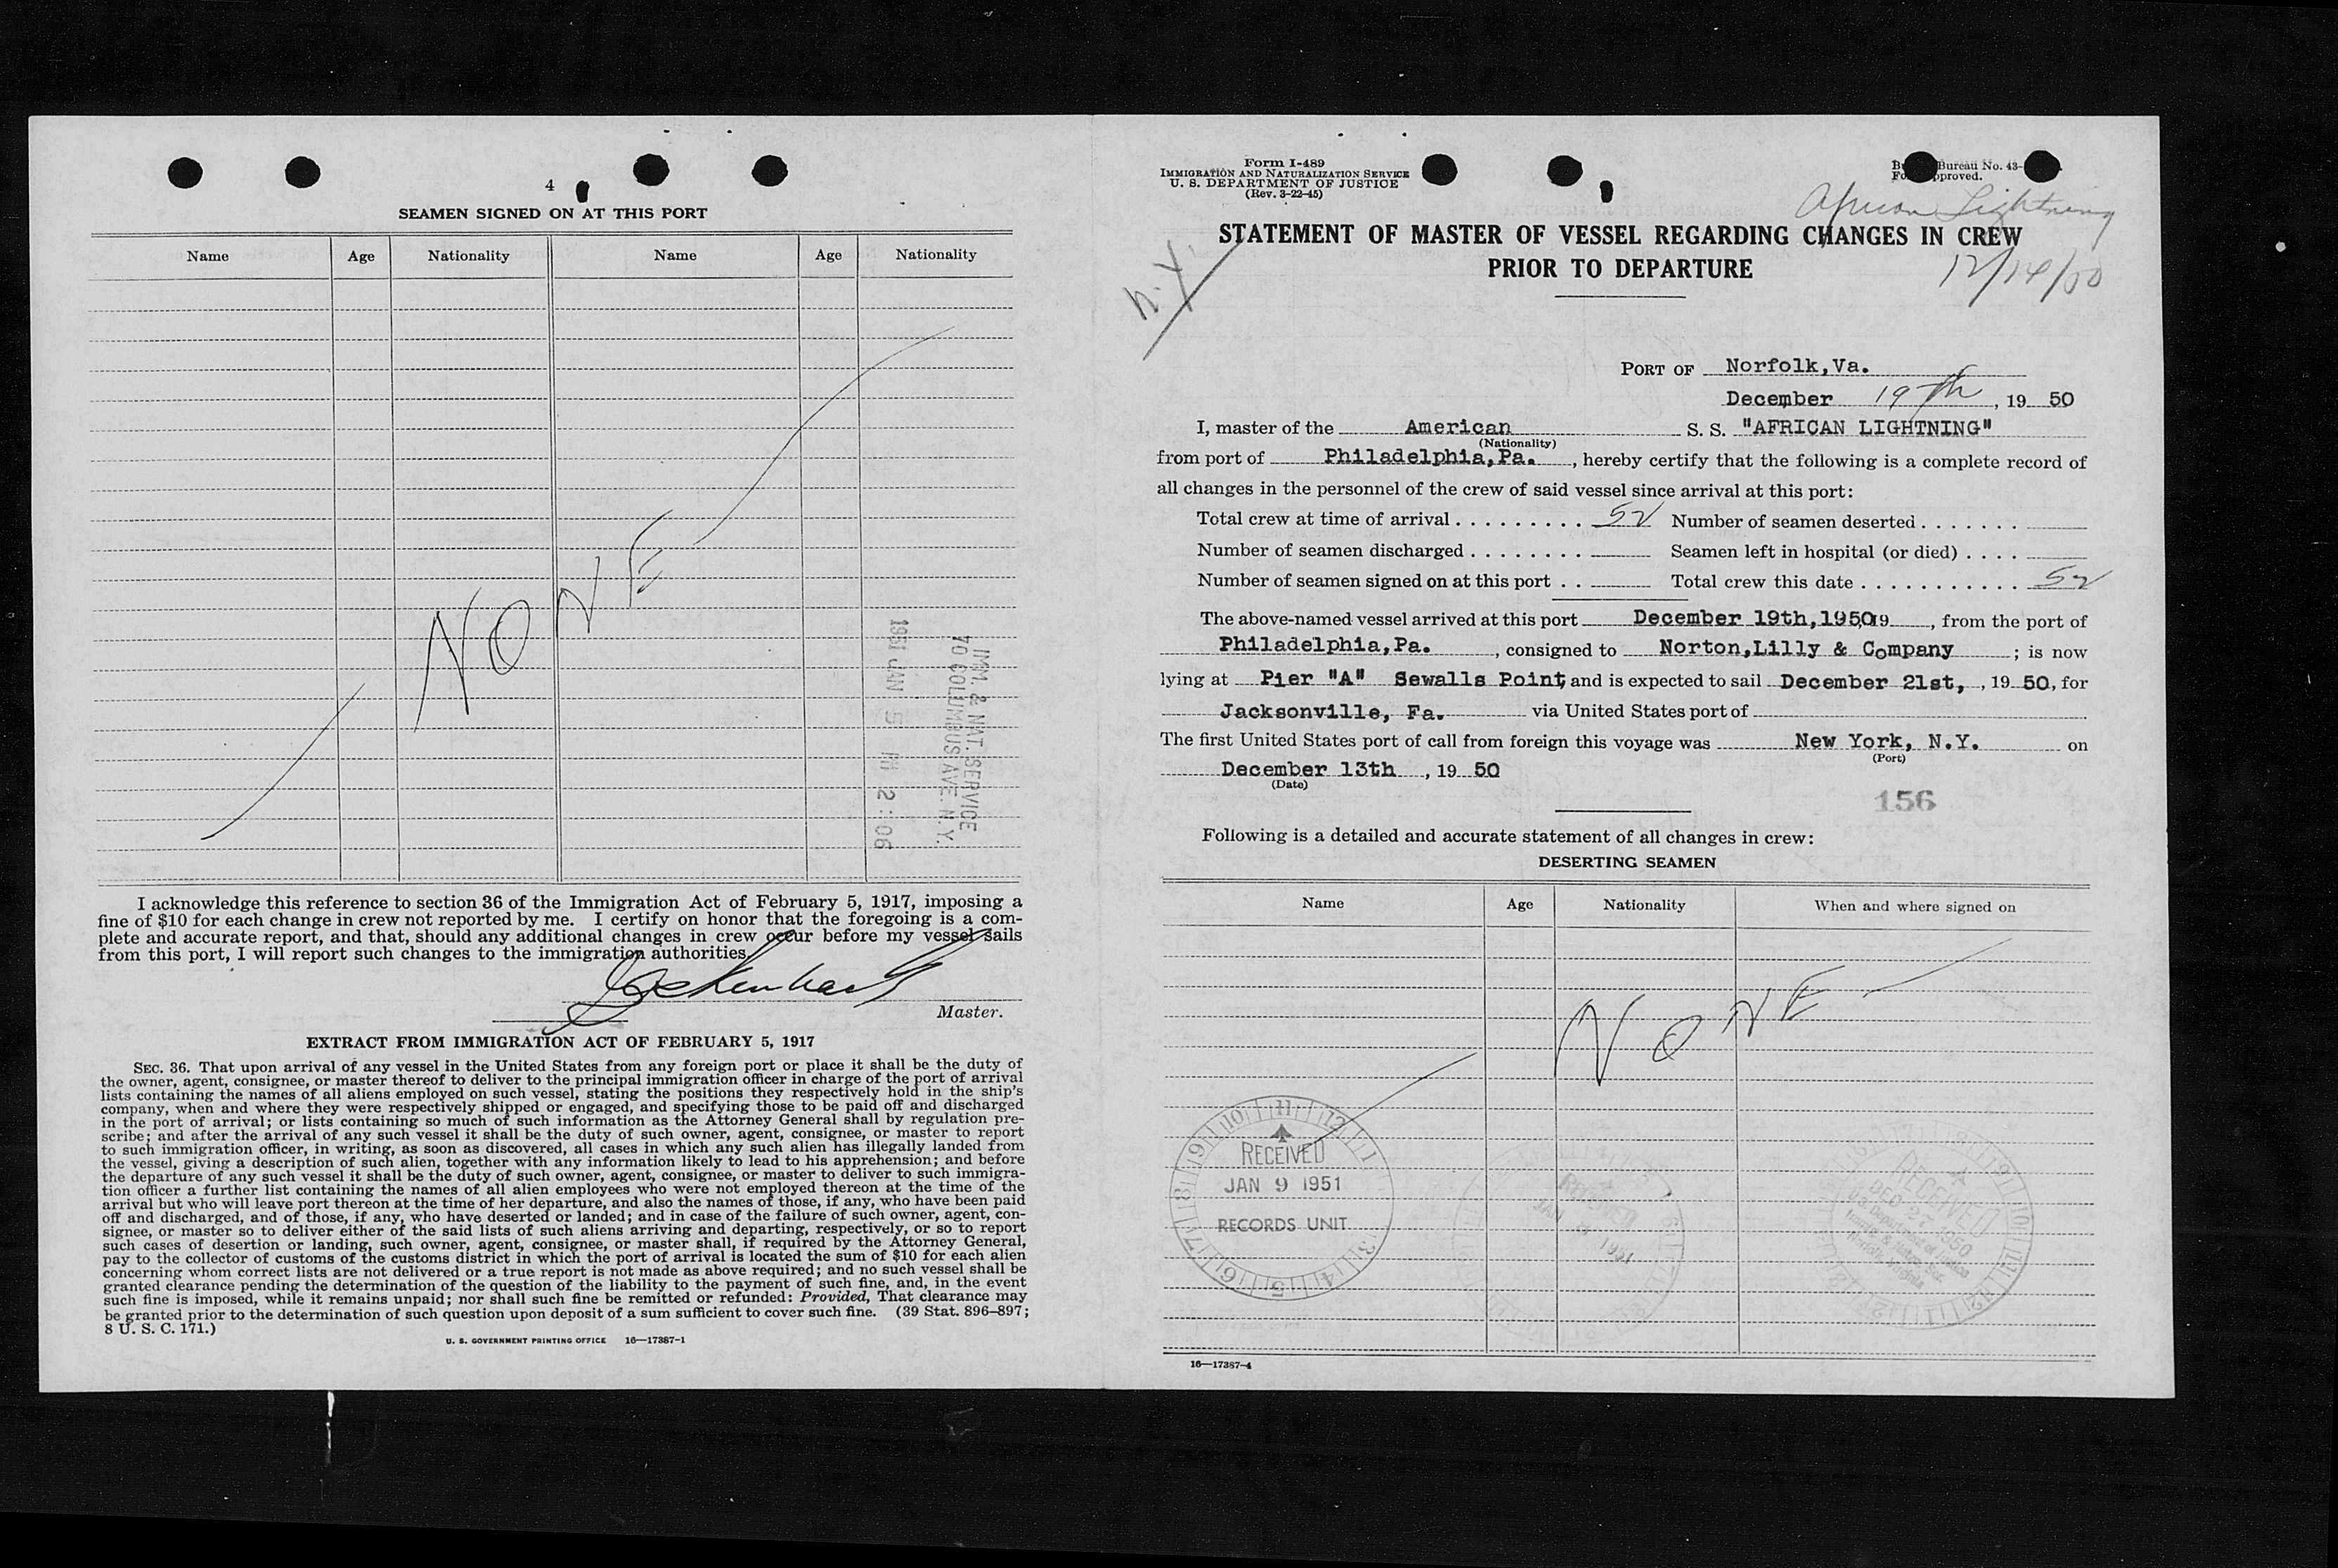 4
SEAMEN SIGNED ON AT THIS PORT
Name Age Nationality Name Age Nationality
NONE
IMM. & NAT. SERVICE
70 COLUMBUS AVE. N.Y.
1951 JAN 5 PM 2:06
I acknowledge this reference to section 36 of the Immigration Act of February 5, 1917, imposing a
fine of $10 for each change in crew not reported by me. I certify on honor that the foregoing is a com-
plete and accurate report, and that, should any additional changes in crew occur before my vessel sails
from this port, I will report such changes to the immigration authorities.
Master.
EXTRACT FROM IMMIGRATION ACT OF FEBRUARY 5, 1917
SEC. 36. That upon arrival of any vessel in the United States from any foreign port or place it shall be the duty of
the owner, agent, consignee, or master thereof to deliver to the principal immigration officer in charge of the port of arrival
lists containing the names of all aliens employed on such vessel, stating the positions they respectively hold in the ship's
company, when and where they were respectively shipped or engaged, and specifying those to be paid off and discharged
in the port of arrival; or lists containing so much of such information as the Attorney General shall by regulation pre-
scribe; and after the arrival of any such vessel it shall be the duty of such owner, agent, consignee, or master to report
to such immigration officer, in writing, as soon as discovered, all cases in which any such alien has illegally landed from
the vessel, giving a description of such alien, together with any information likely to lead to his apprehension; and before
the departure of any such vessel it shall be the duty of such owner, agent, consignee, or master to deliver to such immigra-
tion officer a further list containing the names of all alien employees who were not employed thereon at the time of the
arrival but who will leave port thereon at the time of her departure, and also the names of those, if any, who have been paid
off and discharged, and of those, if any, who have deserted or landed; and in case of the failure of such owner, agent, con-
signee, or master so to deliver either of the said lists of such aliens arriving and departing, respectively, or so to report
such cases of desertion or landing, such owner, agent, consignee, or master shall, if required by the Attorney General,
pay to the collector of customs of the customs district in which the port of arrival is located the sum of $10 for each alien
concerning whom correct lists are not delivered or a true report is not made as above required; and no such vessel shall be
granted clearance pending the determination of the question of the liability to the payment of such fine, and, in the event
such fine is imposed, while it remains unpaid; nor shall such fine be remitted or refunded: Provided, That clearance may
be granted prior to the determination of such question upon deposit of a sum sufficient to cover such fine. (39 Stat. 896–897;
8 U. S. C. 171.)
U. S. GOVERNMENT PRINTING OFFICE 16—17387-1
Form I-489
IMMIGRATION AND NATURALIZATION SERVICE
U. S. DEPARTMENT OF JUSTICE
(Rev. 3-22-45)
Bureau No. 43-
African Lightning
STATEMENT OF MASTER OF VESSEL REGARDING CHANGES IN CREW
PRIOR TO DEPARTURE
12/14/50
N.Y.
PORT OF Norfolk,Va.
December 19th, 19 50
I, master of the American S. S. "AFRICAN LIGHTNING"
(Nationality)
from port of Philadelphia,Pa. , hereby certify that the following is a complete record of
all changes in the personnel of the crew of said vessel since arrival at this port:
Total crew at time of arrival . . . . . . . . . 52 Number of seamen deserted . . . . . . .
Number of seamen discharged . . . . . . . . Seamen left in hospital (or died) . . . .
Number of seamen signed on at this port . . Total crew this date . . . . . . . . . . . . 52
The above-named vessel arrived at this port December 19th,1950, 19 , from the port of
Philadelphia,Pa. , consigned to Norton,Lilly & Company ; is now
lying at Pier "A" Sewalls Point, and is expected to sail December 21st, , 19 50, for
Jacksonville, Fa. via United States port of
The first United States port of call from foreign this voyage was New York, N.Y. on
(Port)
December 13th , 19 50
(Date)
156
Following is a detailed and accurate statement of all changes in crew:
DESERTING SEAMEN
Name Age Nationality When and where signed on
NONE
10 11 12 1 3 4 5 6 7 8 9
RECEIVED
JAN 9 1951
RECORDS UNIT
RECEIVED
JAN 1951
RECEIVED
DEC 27 1950
U.S. Department of Justice
Norfolk, Virginia
16—17387-4